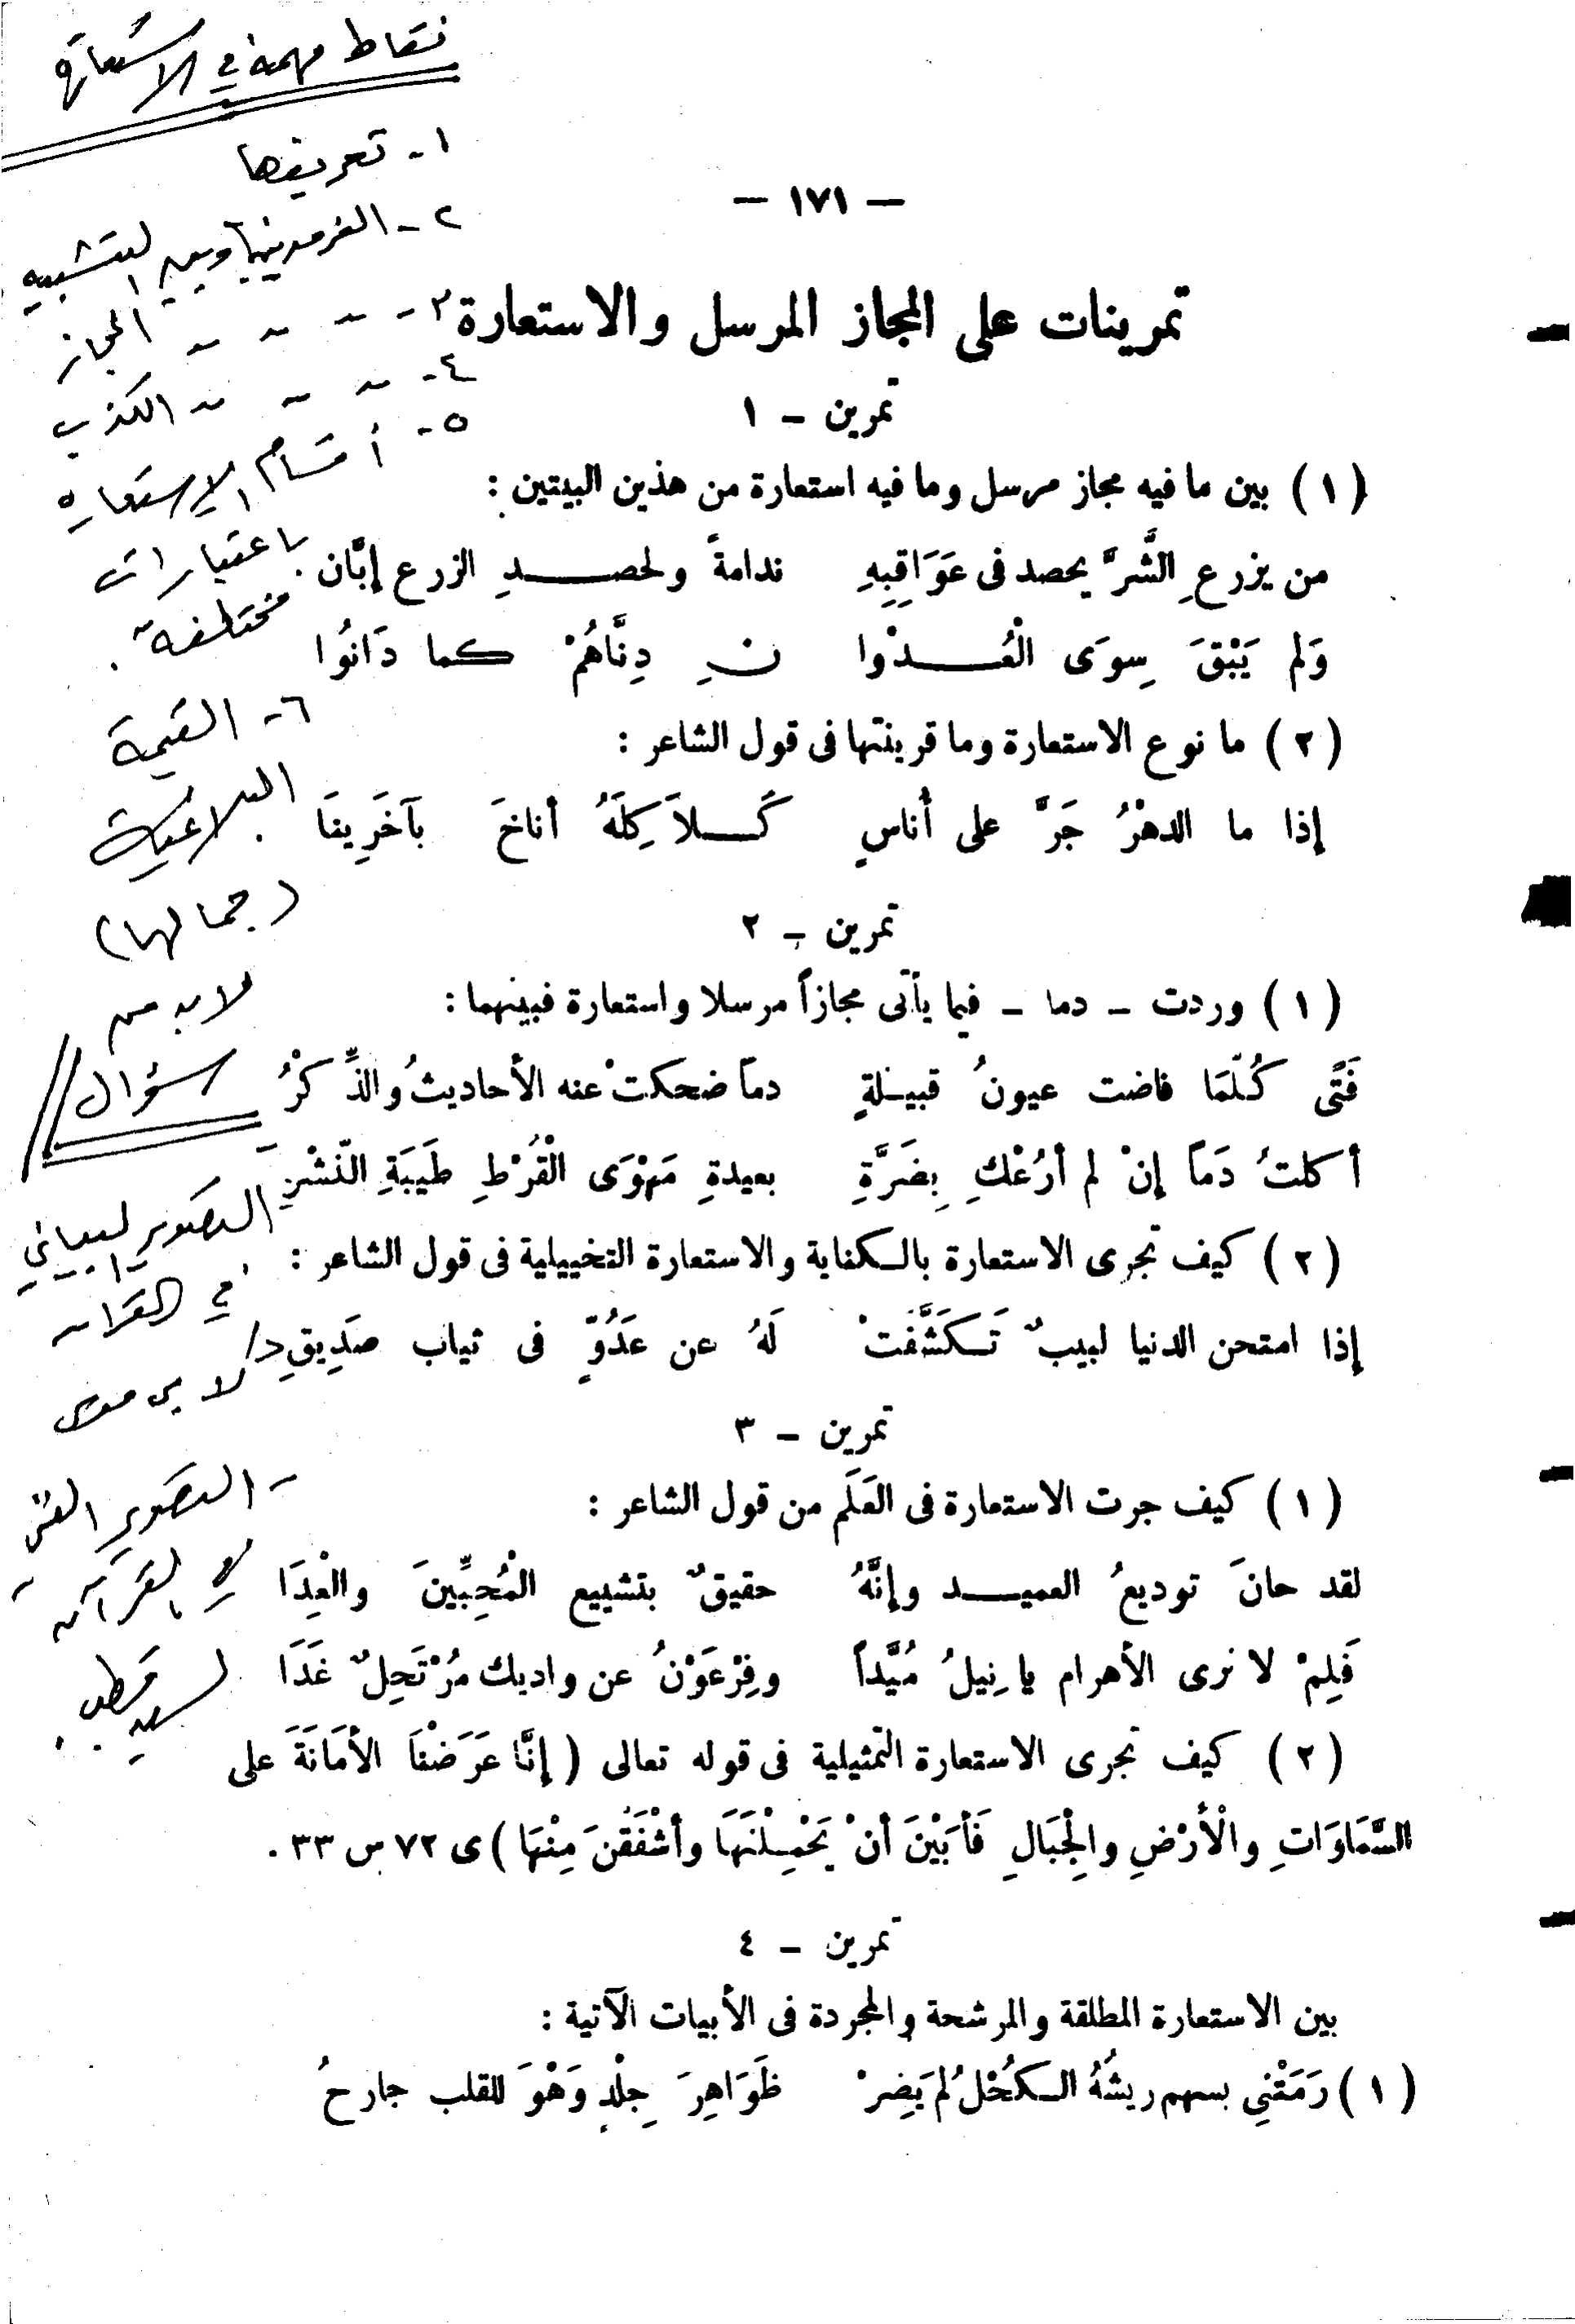 نقاط مهمة في الاستعارة
١- تعريفها
٢- الفرق بينها وبين التشبيه
٣- ~ ~ ~ المجاز
٤- ~ ~ ~ الكذب
٥- أقسام الاستعارة
باعتبارات
مختلفة.
٦- القيمة
البلاغية
(جمالها)
لا بد من
سؤال
- التصوير البياني
في القرآن
د/ لا
- التصوير الفني
في القرآن
لسيد قطب.
— ١٧١ —
تمرينات على المجاز المرسل والاستعارة
تمرين — ١
(١) بين ما فيه مجاز مرسل وما فيه استعارة من هذين البيتين :
من يزرعِ الشَّرَّ يحصد فى عَوَاقِبِهِ ندامةً ولحصـــدِ الزرع إبَّان
وَلم يَبْقَ سِوَى الْعُــدْوا نِ دِنَّاهُمْ كما دَانُوا
(٢) ما نوع الاستعارة وما قرينتها فى قول الشاعر :
إذا ما الدهْرُ جَرَّ على أُناسٍ كَــلاَكِلَهُ أناخَ بآخَرِينَا
تمرين — ٢
(١) وردت — دما — فيما يأتى مجازاً مرسلا واستعارة فبينهما :
فَتًى كُلّمَا فاضت عيونُ قبيلةٍ دماً ضحكتْ عنه الأحاديثُ والذِّكْرُ
أكلتُ دَماً إنْ لم أرُعْكِ بِضَرَّةِ بعيدةِ مَهْوَى الْقُرْطِ طَيبَةِ النّشْرِ
(٢) كيف تجرى الاستعارة بالكناية والاستعارة التخييلية فى قول الشاعر :
إذا امتحن الدنيا لبيبٌ تَكَشَّفَتْ لَهُ عن عَدُوّ فى ثياب صَدِيقِ
تمرين — ٣
(١) كيف جرت الاستعارة فى العَلَم من قول الشاعر :
لقد حانَ توديعُ العميــد وإنَّهُ حقيقٌ بتشييع الْمُحِبِّينَ والْعِدَا
فَلِمْ لا نرى الأهرام يا نِيلُ مُيَّداً وفِرْعَوْنُ عن واديك مُرْتَحِلٌ غَدَا
(٢) كيف تجرى الاستعارة التمثيلية فى قوله تعالى (إنَّا عَرَضْنَا الأمَانَةَ على
السَّمَاوَاتِ والْأرْضِ والْجِبَالِ فَأبَيْنَ أنْ يَحْمِلْنَهَا وأشْفَقْنَ مِنْهَا) ى ٧٢ س ٣٣ .
تمرين — ٤
بين الاستعارة المطلقة والمرشحة والمجردة فى الأبيات الآتية :
(١) رَمَتْنِي بسهم ريشُهُ الكُحْلُ لم يَضِرْ ظَوَاهِرَ جِلْدٍ وَهْوَ للقلب جارحُ